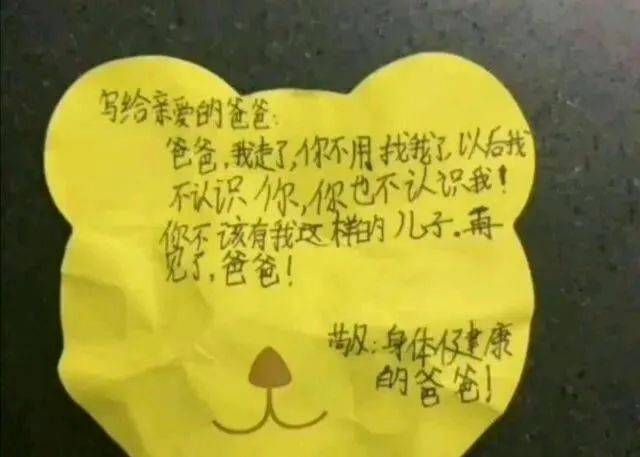 写给亲爱的爸爸:
爸爸,我走了,你不用找我了以后我
不认识你,你也不认识我!
你不该有我这样的儿子。再
见了,爸爸!
身体健康
的爸爸!